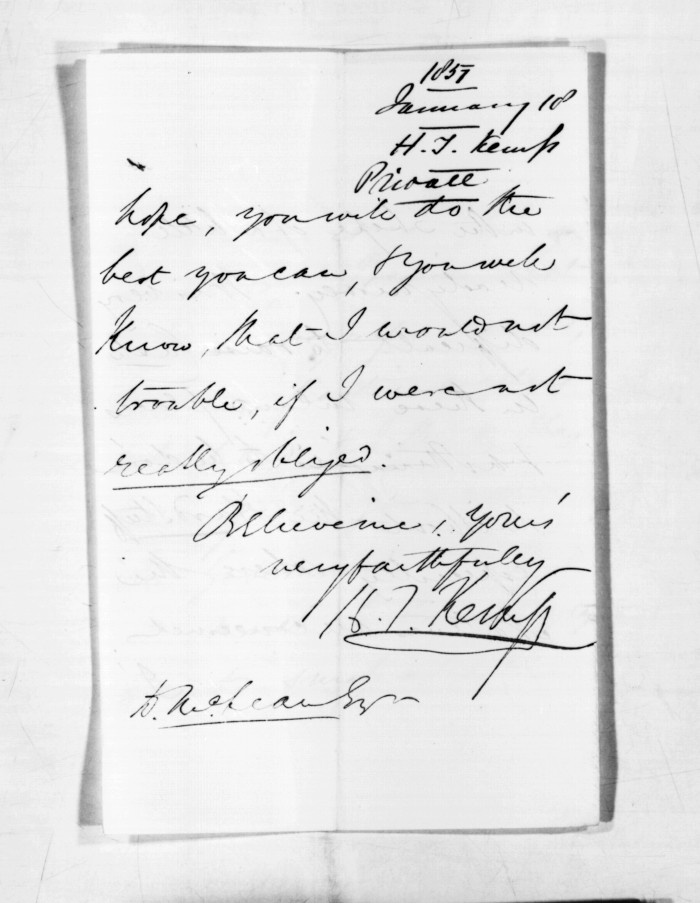 1857
January 18
H. T. Kemp
Private
hope, you will do the
best you can, & you well
Know, that I would not
trouble, if I were not
really obliged.
Believe me, Yours
very faithfully
H. T. Kemp
D. McLean Esqr